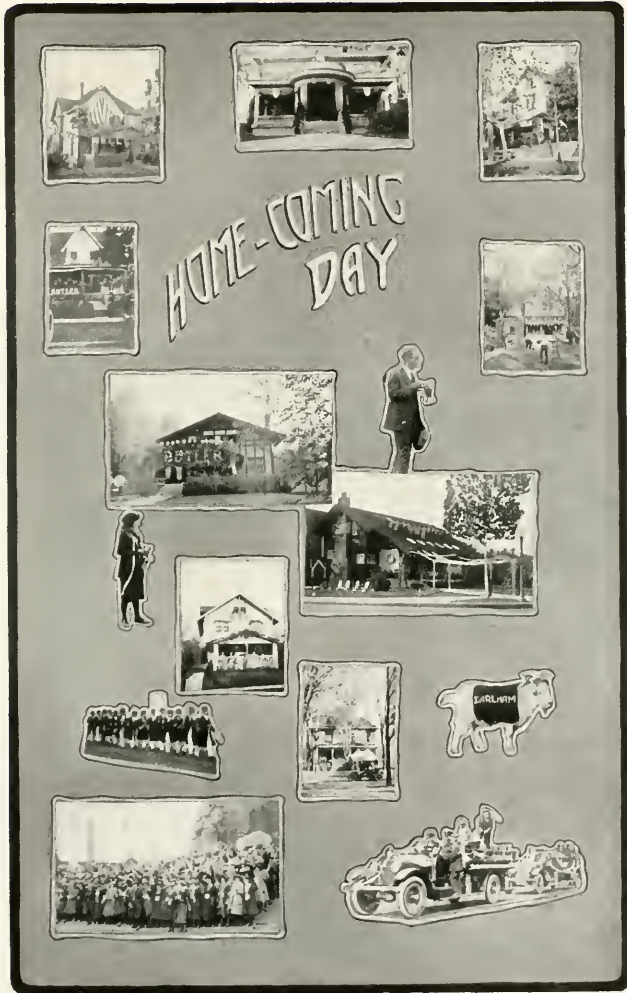 HOME-COMING
DAY
BUTLER
EARLHAM